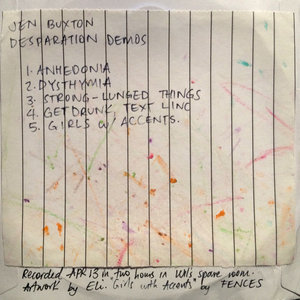 JEN BUXTON
DESPARATION DEMOS
1. ANHEDONIA
2. DYSTHYMIA
3. STRONG-LUNGED THINGS
4. GET DRUNK, TEXT LINC
5. GIRLS w/ ACCENTS.
Recorded APR 13 in two hours in spare room.
Artwork by Eli. "Girls with Accents" by FENCES